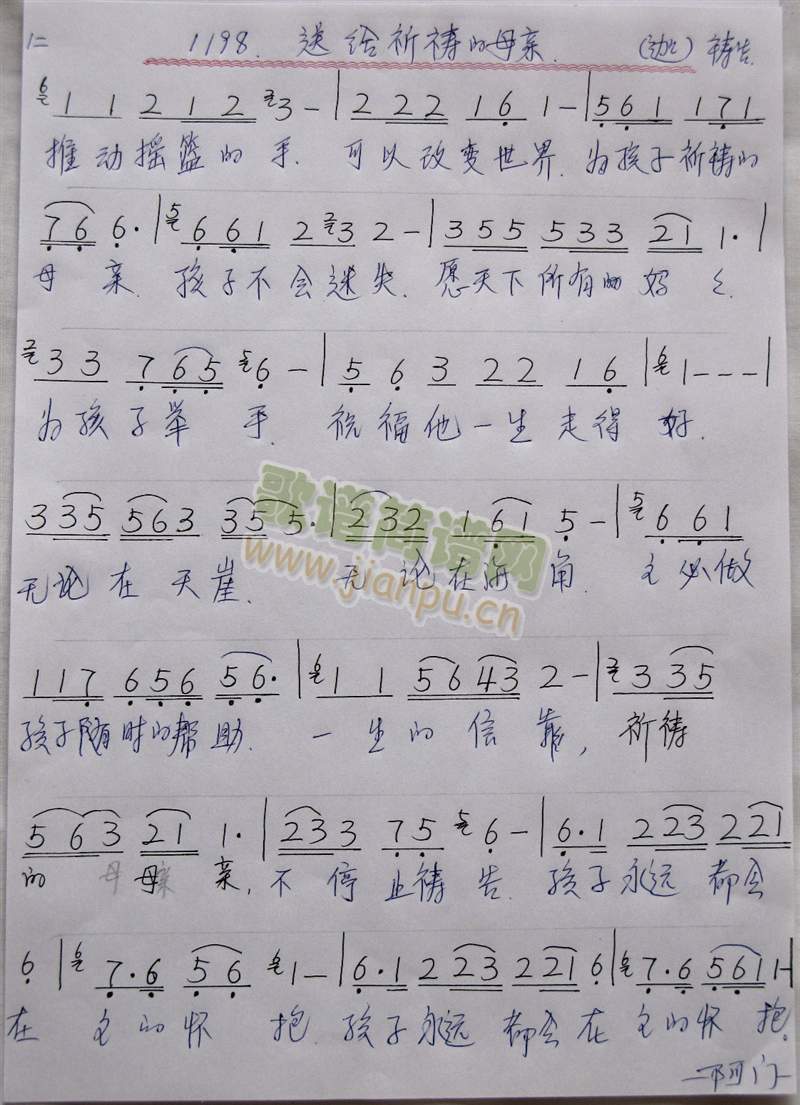 1= 1198. 送给祈祷的母亲. (迦) 祷告.
1 1 2 1 2 3 - | 2 2 2 2 1 6 1 - | 5 6 1 1 7 1
推动摇篮的手. 可以改变世界. 为孩子祈祷的
7 6 6· | 6 6 1 2 3 2 - | 3 5 5 5 3 3 2 1 1· |
母亲. 孩子不会迷失. 愿天下所有的妈
3 3 7 6 5 6 - | 5 6 3 2 2 1 6 | 1 - - - |
为孩子举手. 祝福他一生走得好.
3 3 5 5 6 3 3 5 5· | 2 3 2 1 6 1 5 - | 6 6 1
无论在天崖. 无论在海角. 主必做
歌谱简谱网
www.jianpu.cn
1 1 7 6 5 6 5 6· | 1 1 5 6 4 3 2 - | 3 3 5
孩子随时的帮助. 一生的信靠, 祈祷
5 6 3 2 1 1· | 2 3 3 7 5 6 - | 6· 1 2 2 3 2 2 1
的母亲, 不停止祷告. 孩子永远都会
6 | 7· 6 5 6 1 - | 6· 1 2 2 3 2 2 1 6 | 7· 6 5 6 1 1 -
在主的怀抱. 孩子永远都会在主的怀抱.
—阿门—